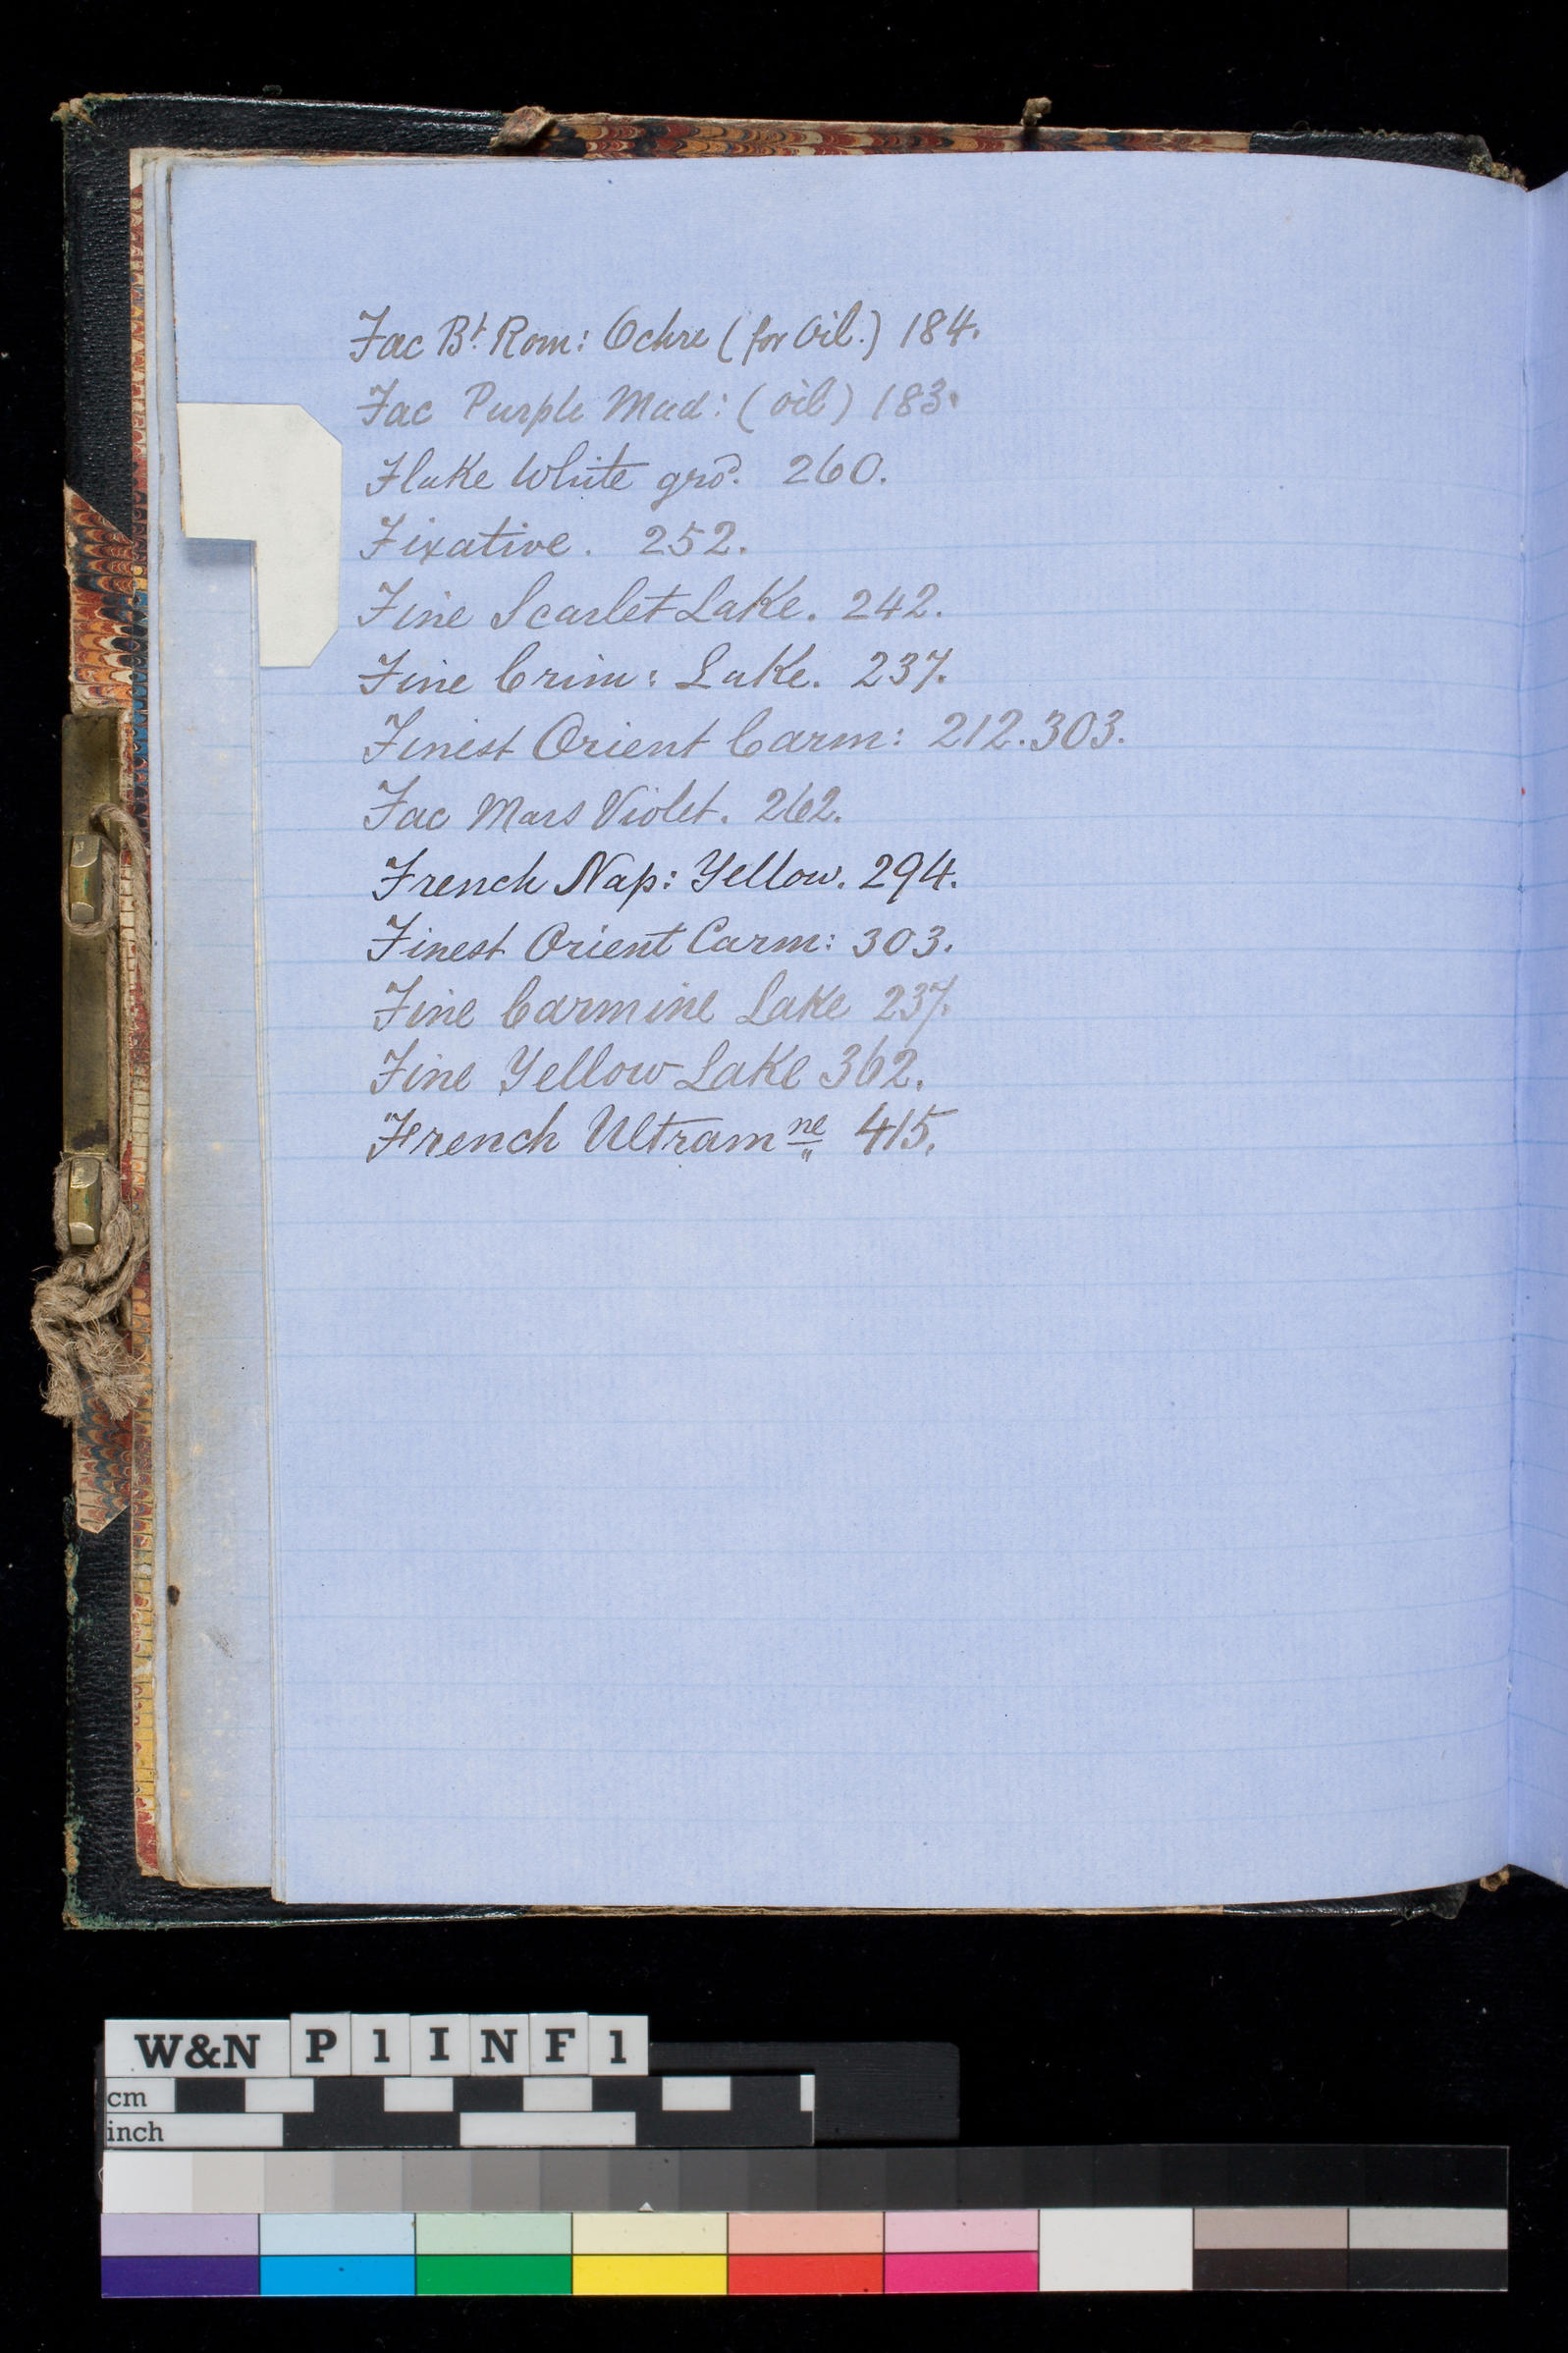 Fac Bt. Rom: Ochre (for Oil.) 184.
Fac Purple Mad: (oil) 183.
Flake White gro͞d. 260.
Fixative. 252.
Fine Scarlet Lake. 242.
Fine Crim: Lake. 237.
Finest Orient Carm: 212.303.
Fac Mars Violet. 262.
French Nap: Yellow. 294.
Finest Orient Carm: 303.
Fine Carmine Lake 237.
Fine Yellow Lake 362.
French Ultramne 415.
W&N P1INF1
cm
inch